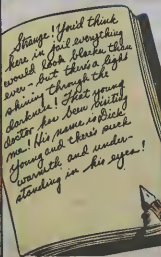 Strange! You'd think
here in jail everything
would look blacker than
ever - but there's a light
shining through the
darkness! That young
doctor has been visiting
me! His name is Dick
Young and there's such
warmth and under-
standing in his eyes!